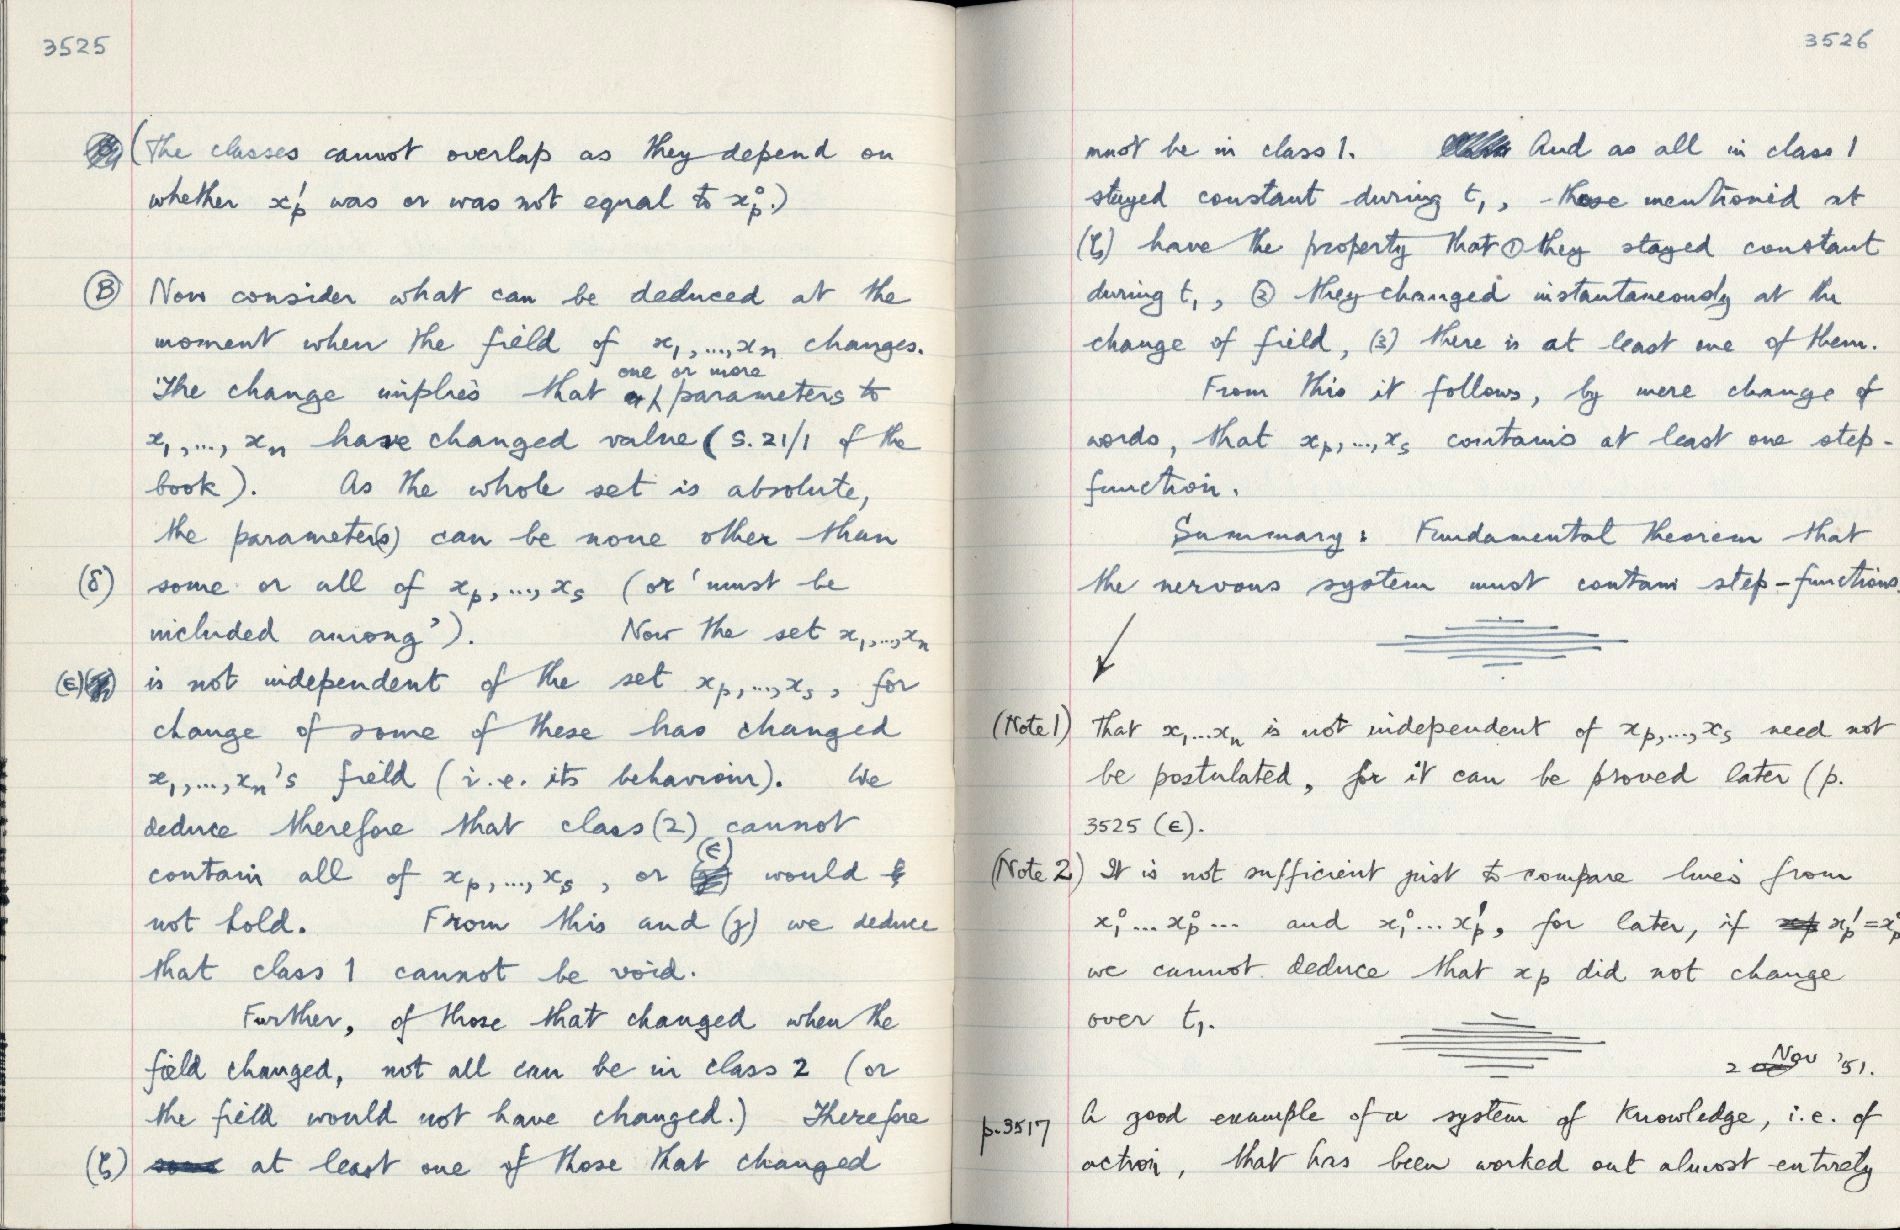 3525
(The classes cannot overlap as they depend on
whether x'p was or was not equal to x°p.)
(B) Now consider what can be deduced at the
moment when the field of x₁,...,xₙ changes.
one or more
The change implies that parameters to
x₁,..., xₙ have changed value (S. 21/1 of the
book). As the whole set is absolute,
the parameter(s) can be none other than
(δ) some or all of xp,..., xs (or 'must be
included among'). Now the set x₁,...,xₙ
(ε) is not independent of the set xp,...,xs, for
change of some of these has changed
x₁,...,xₙ's field (i.e. its behaviour). We
deduce therefore that class (2) cannot
contain all of xp,...,xs, or (ε) would
not hold. From this and (γ) we deduce
that class 1 cannot be void.
Further, of those that changed when the
field changed, not all can be in class 2 (or
the field would not have changed.) Therefore
(ζ) at least one of those that changed
3526
must be in class 1. And as all in class 1
stayed constant during t₁, those mentioned at
(ζ) have the property that ① they stayed constant
during t₁, ② they changed instantaneously at the
change of field, (3) there is at least one of them.
From this it follows, by mere change of
words, that xp,...,xs contains at least one step-
function.
Summary: Fundamental theorem that
the nervous system must contain step-functions.
(Note 1) That x₁...xₙ is not independent of xp,...,xs need not
be postulated, for it can be proved later (p.
3525 (ε).
(Note 2) It is not sufficient just to compare lines from
x₁°... xp°... and x₁°... xp', for later, if xp' = xp°
we cannot deduce that xp did not change
over t₁.
2 Nov '51.
p.3517 A good example of a system of knowledge, i.e. of
action, that has been worked out almost entirely